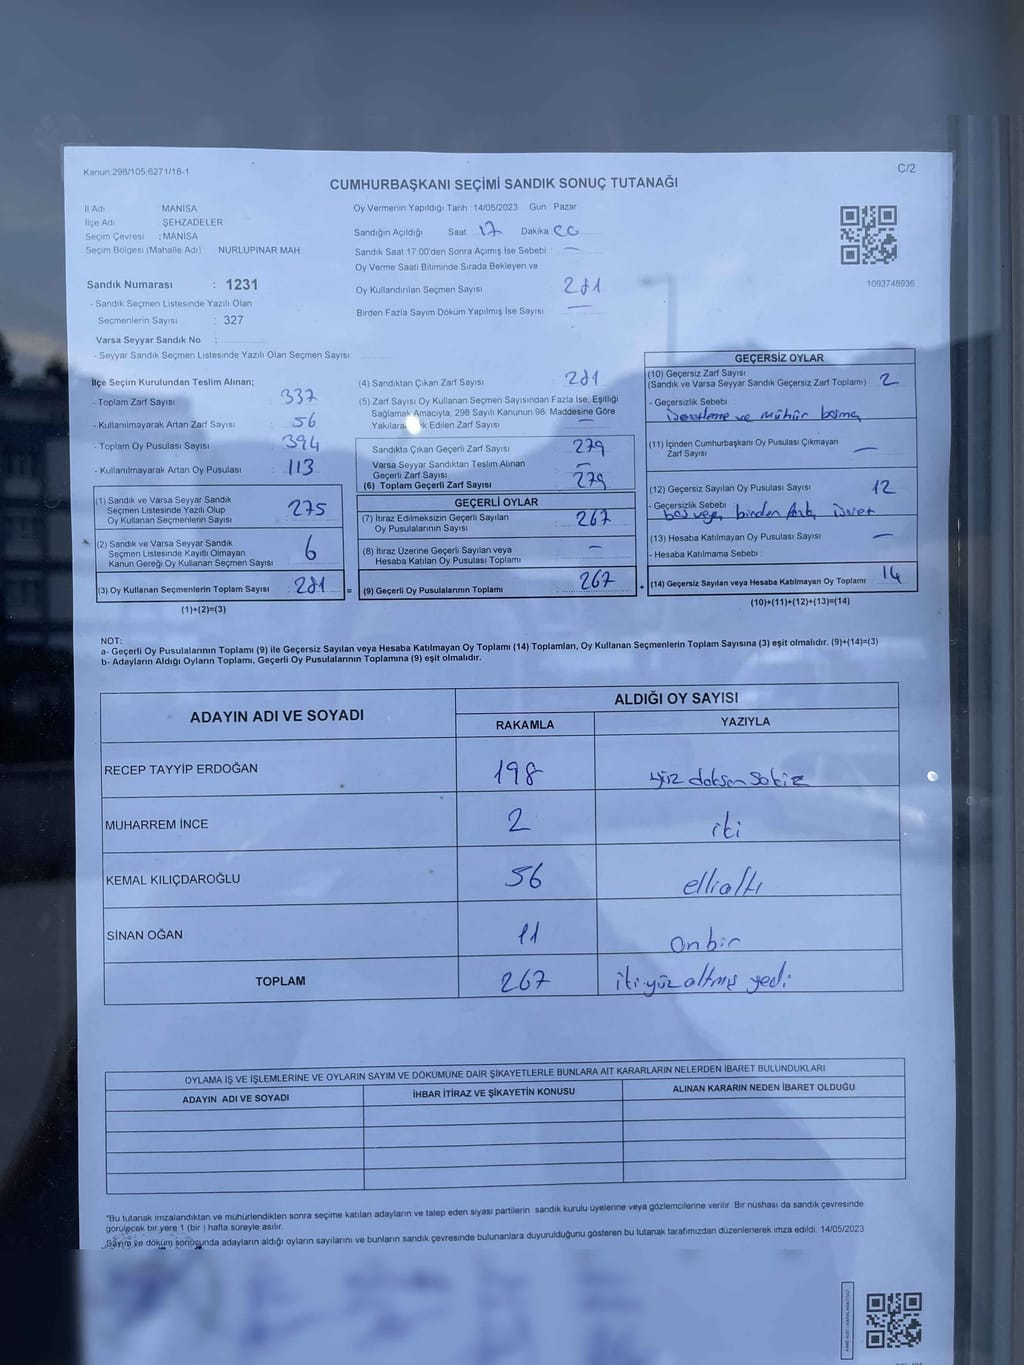 Kanun 298/105,6271/18-1
C/2
CUMHURBAŞKANI SEÇİMİ SANDIK SONUÇ TUTANAĞI
İl Adı MANİSA
İlçe Adı ŞEHZADELER
Seçim Çevresi : MANİSA
Seçim Bölgesi (Mahalle Adı) NURLUPINAR MAH
Sandık Numarası : 1231
- Sandık Seçmen Listesinde Yazılı Olan
Seçmenlerin Sayısı : 327
Varsa Seyyar Sandık No :
- Seyyar Sandık Seçmen Listesinde Yazılı Olan Seçmen Sayısı
Oy Vermenin Yapıldığı Tarih 14/05/2023 Gün Pazar
Sandığın Açıldığı Saat 17 Dakika 00
Sandık Saat 17:00'den Sonra Açımış İse Sebebi : —
Oy Verme Saati Bitiminde Sırada Bekleyen ve
Oy Kullandırılan Seçmen Sayısı 281
Birden Fazla Sayım Döküm Yapılmış İse Sayısı —
1093748936
İlçe Seçim Kurulundan Teslim Alınan;
- Toplam Zarf Sayısı 337
- Kullanılmayarak Artan Zarf Sayısı 56
- Toplam Oy Pusulası Sayısı 394
- Kullanılmayarak Artan Oy Pusulası 113
(1) Sandık ve Varsa Seyyar Sandık
Seçmen Listesinde Yazılı Olup
Oy Kullanan Seçmenlerin Sayısı 275
(2) Sandık ve Varsa Seyyar Sandık
Seçmen Listesinde Kayıtlı Olmayan
Kanun Gereği Oy Kullanan Seçmen Sayısı 6
(3) Oy Kullanan Seçmenlerin Toplam Sayısı 281 =
(1)+(2)=(3)
(4) Sandıktan Çıkan Zarf Sayısı 281
(5) Zarf Sayısı Oy Kullanan Seçmen Sayısından Fazla İse, Eşitliği
Sağlamak Amacıyla, 298 Sayılı Kanunun 98. Maddesine Göre
Edilen Zarf Sayısı —
Sandıkta Çıkan Geçerli Zarf Sayısı 279
Varsa Seyyar Sandıktan Teslim Alınan
Geçerli Zarf Sayısı —
(6) Toplam Geçerli Zarf Sayısı 279
GEÇERLİ OYLAR
(7) İtiraz Edilmeksizin Geçerli Sayılan
Oy Pusulalarının Sayısı 267
(8) İtiraz Üzerine Geçerli Sayılan veya
Hesaba Katılan Oy Pusulası Toplamı —
(9) Geçerli Oy Pusulalarının Toplamı 267 +
GEÇERSİZ OYLAR
(10) Geçersiz Zarf Sayısı
(Sandık ve Varsa Seyyar Sandık Geçersiz Zarf Toplamı) 2
- Geçersizlik Sebebi
İşaretleme ve mühür basma
(11) İçinden Cumhurbaşkanı Oy Pusulası Çıkmayan
Zarf Sayısı —
(12) Geçersiz Sayılan Oy Pusulası Sayısı 12
- Geçersizlik Sebebi
boş veya birden fazla işaret
(13) Hesaba Katılmayan Oy Pusulası Sayısı —
- Hesaba Katılmama Sebebi
(14) Geçersiz Sayılan veya Hesaba Katılmayan Oy Toplamı 14
(10)+(11)+(12)+(13)=(14)
NOT:
a- Geçerli Oy Pusulalarının Toplamı (9) ile Geçersiz Sayılan veya Hesaba Katılmayan Oy Toplamı (14) Toplamları, Oy Kullanan Seçmenlerin Toplam Sayısına (3) eşit olmalıdır. (9)+(14)=(3)
b- Adayların Aldığı Oyların Toplamı, Geçerli Oy Pusulalarının Toplamına (9) eşit olmalıdır.
ADAYIN ADI VE SOYADI
ALDIĞI OY SAYISI
RAKAMLA YAZIYLA
RECEP TAYYİP ERDOĞAN 198 yüz doksan sekiz
MUHARREM İNCE 2 iki
KEMAL KILIÇDAROĞLU 56 ellialtı
SİNAN OĞAN 11 onbir
TOPLAM 267 ikiyüz altmış yedi
OYLAMA İŞ VE İŞLEMLERİNE VE OYLARIN SAYIM VE DÖKÜMÜNE DAİR ŞİKAYETLERLE BUNLARA AİT KARARLARIN NELERDEN İBARET BULUNDUKLARI
ADAYIN ADI VE SOYADI İHBAR İTİRAZ VE ŞİKAYETİN KONUSU ALINAN KARARIN NEDEN İBARET OLDUĞU
*Bu tutanak imzalandıktan ve mühürlendikten sonra seçime katılan adayların ve talep eden siyasi partilerin sandık kurulu üyelerine veya gözlemcilerine verilir. Bir nüshası da sandık çevresinde
görülecek bir yere 1 (bir ) hafta süreyle asılır.
Sayım ve döküm sonucunda adayların aldığı oyların sayılarını ve bunların sandık çevresinde bulunanlara duyurulduğunu gösteren bu tutanak tarafımızdan düzenlenerek imza edildi. 14/05/2023